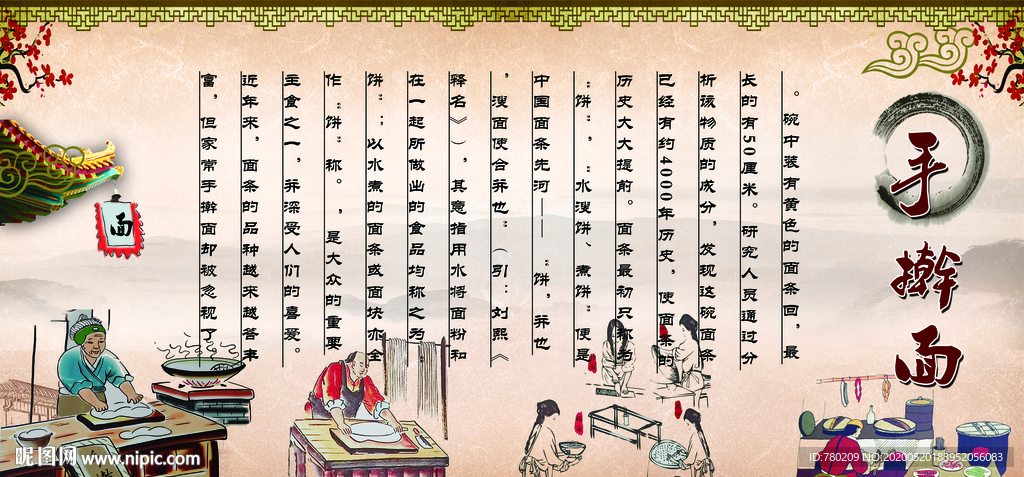 手擀面
。碗中装有黄色的面条回，最
长的有50厘米。研究人员通过分
析该物质的成分，发现这碗面条
已经有约4000年历史，使面条的
历史大大提前。面条最初只称老
“饼”，“水溲饼、煮饼”便是
中国面条先河——“饼，并也
，溲面使合并也”（引：刘熙《
释名》），其意指用水将面粉和
在一起所做出的食品均称之为
饼”；以水煮的面条或面块亦全
作“饼”称。，是大众的重要
主食之一，并深受人们的喜爱。
近年来，面条的品种越来越答丰
富，但家常手擀面却被忽视了
面
昵图网 www.nipic.com
ID:780209 NO:20200520183952056083